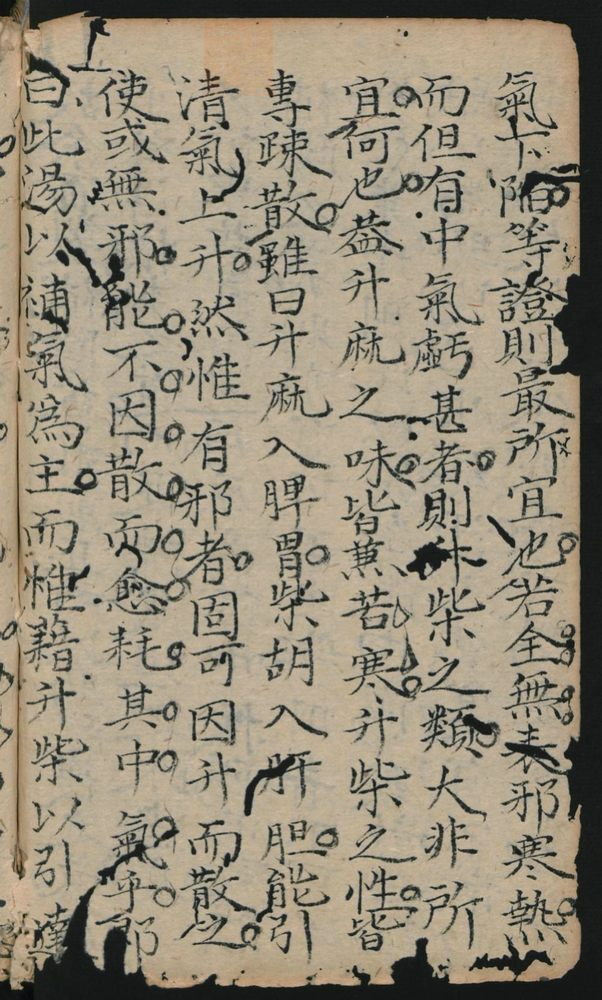 氣下陷等證則最所宜也若全無表邪寒熱
而但有中氣虧甚者則升柴之類大非所
宜何也蓋升麻之味皆兼苦寒升柴之性皆
專疎散雖曰升麻入脾胃柴胡入肝胆能引
清氣上升然惟有邪者固可因升而散之
使或無邪能不因散而愈耗其中氣乎即
曰此湯以補氣爲主而惟藉升柴以引達
上